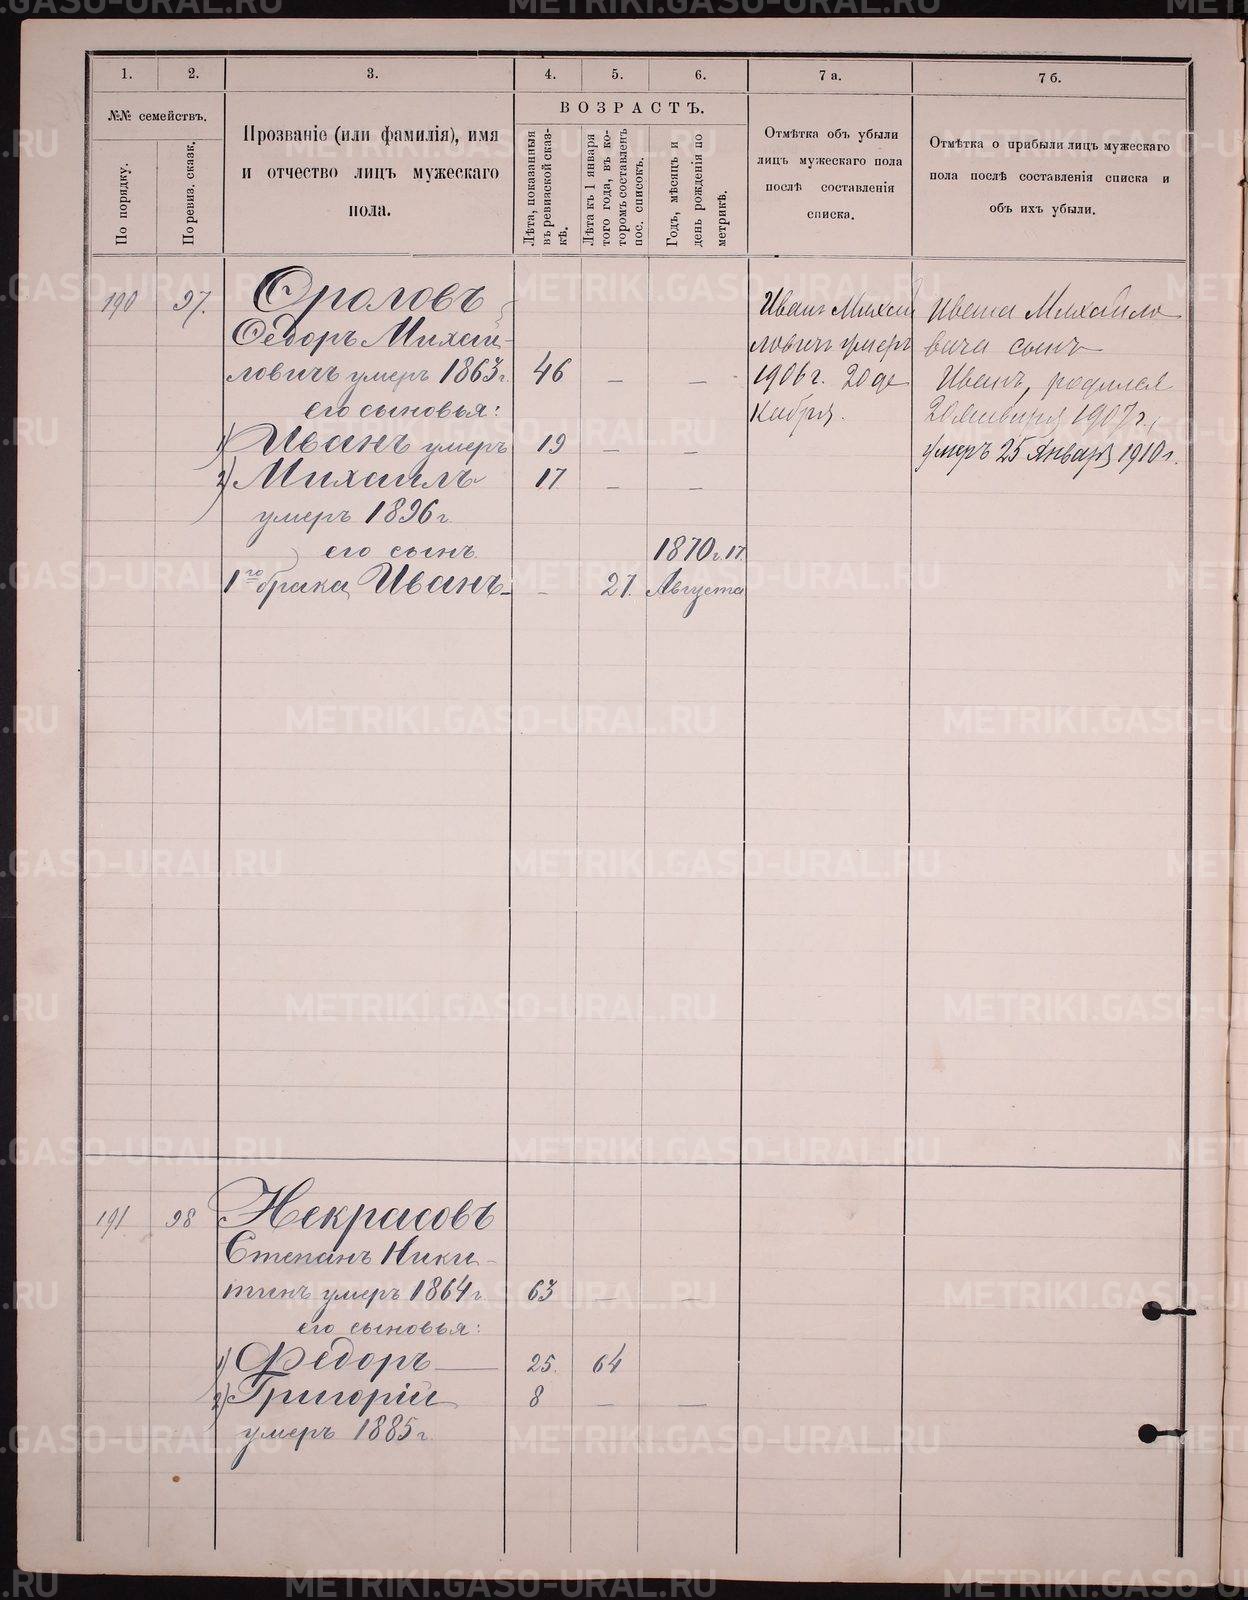 1.
2.
3.
4.
5.
6.
7 а.
7 б.
№№ семействъ.
По порядку.
По ревиз. сказк.
Прозваніе (или фамилія), имя
и отчество лицъ мужескаго
пола.
ВОЗРАСТЪ.
Лѣта, показанныя
въ ревизской сказ-
кѣ.
Лѣта къ 1 января
того года, въ ко-
торомъ составленъ
пос. списокъ.
Годъ, мѣсяцъ и
день рожденія по
метрикѣ.
Отмѣтка объ убыли
лицъ мужескаго пола
послѣ составленія
списка.
Отмѣтка о прибыли лицъ мужескаго
пола послѣ составленія списка и
объ ихъ убыли.
190 97. Ѳроловъ
Ѳедоръ Михай-
ловичъ умеръ 1863 г. 46 — —
его сыновья:
1) Иванъ умеръ 19 — —
2) Михаилъ 17 — —
умеръ 1896 г.
его сынъ
1го брака Иванъ — - 27. 1870 г. 17
Августа
Иванъ Михай
ловичъ умеръ
1906 г. 20 де
кабря.
Ивана Михайло
вича сынъ
Иванъ, родился
20 января 1907 г.,
умеръ 25 Января 1910 г.
191 98 Некрасовъ
Степанъ Ники-
тинъ умеръ 1864 г 63 — —
его сыновья:
1) Федоръ — 25. 64
2) Григорій 8 — —
умеръ 1885 г.
METRIKI.GASO-URAL.RU